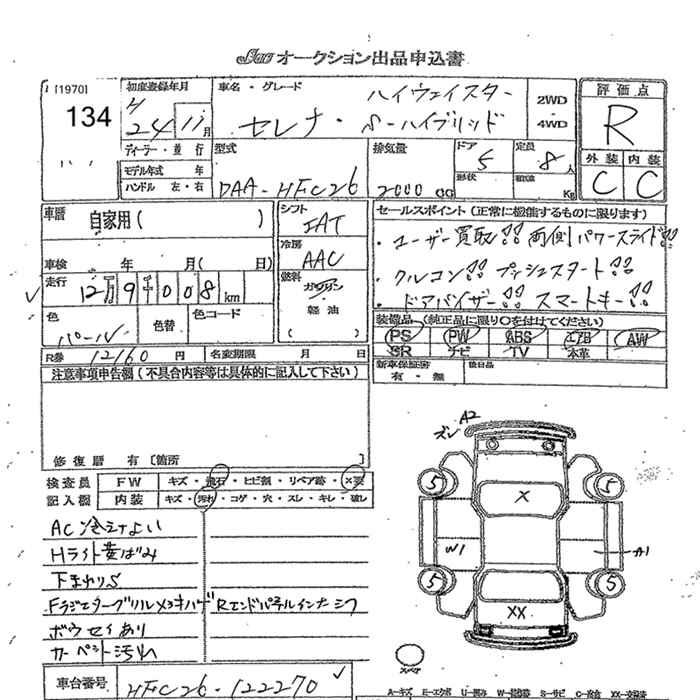 オークション出品申込書
[1970]
134
初度登録年月
24 11月
車名・グレード
ハイウェイスター
セレナ・S-ハイブリッド
2WD
4WD
評価点
R
外装 内装
C C
ディーラー・並行
モデル年式 年
ハンドル 左・右
型式
DAA-HFC26
排気量
2000 CC
ドア
5
形状
定員
8人
積載
Kg
車歴
自家用( )
車検 年 月( 日)
シフト
IAT
冷房
AAC
燃料
ガソリン
(軽油)
セールスポイント(正常に機能するものに限ります)
・ユーザー買取!! 両側パワースライド!!
・クルコン!! プッシュスタート!!
・ドアバイザー!! スマートキー!!
走行
12万9千008km
色
パール
色替
色コード
R券 12160円
名変期限 月 日
装備品(純正品に限り○を付けてください)
PS PW ABS エアB AW
SR ナビ TV 本革
新車保証書
有・無
後日品
注意事項申告欄(不具合内容等は具体的に記入して下さい)
修復歴 有〔箇所 〕
検査員
記入欄
FW キズ・飛石・ヒビ割・リペア跡・X要
内装 キズ・汚れ・コゲ・穴・スレ・キレ・破し
AC冷えよい
Hライト黄ばみ
下まわりS
Fラジエターグリルメッキハゲ Rエンドパネルインナーミワ
ボウセイあり
カーペット汚れ
ズレ A2
5 5
X
W1 A1
5 5
XX
スペア
車台番号 HFC26-122270
A-キズ E-エクボ U-凹み W-補修跡 S-サビ C-腐食 XX-交換済